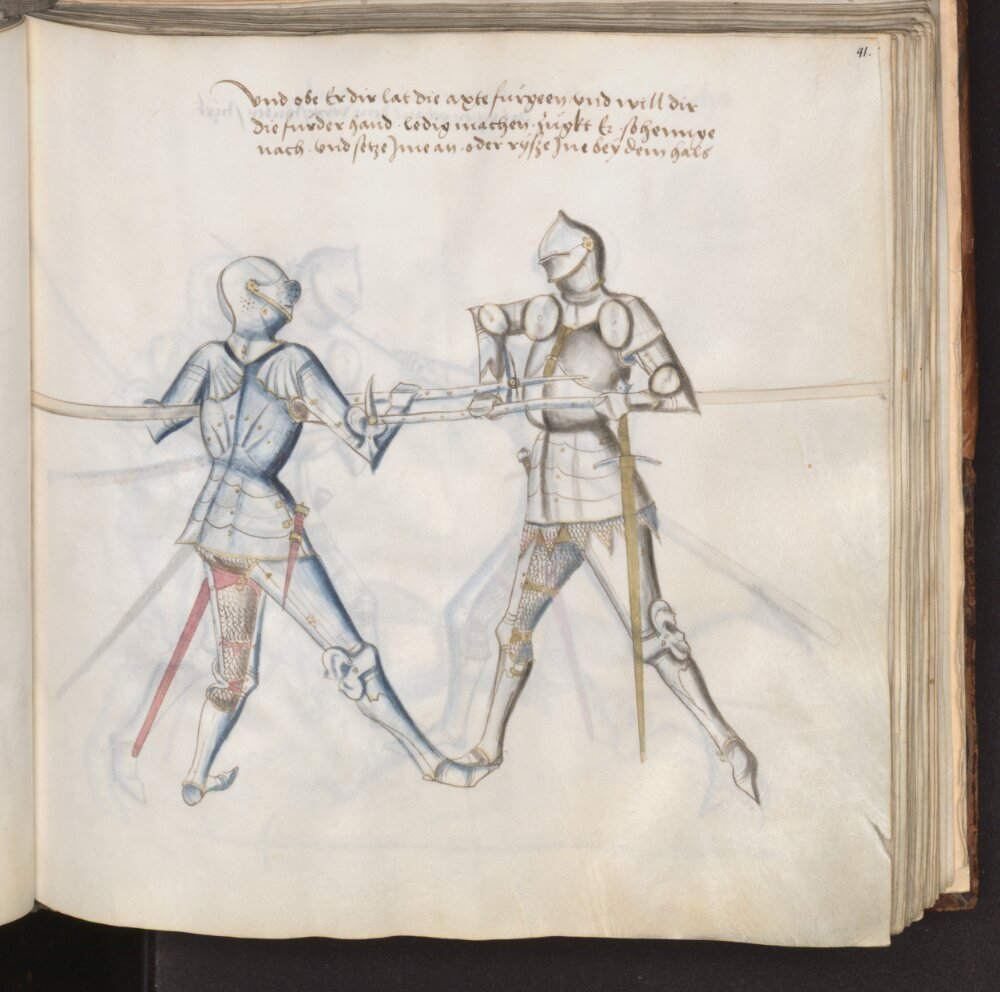 91.
Vnd obe Er dir lat die axte furgeen vnd will dir
die furder hand ledig machen Zugkt Er so hennge
nach vnd setze Jme an oder rysse Jne bey dem hals